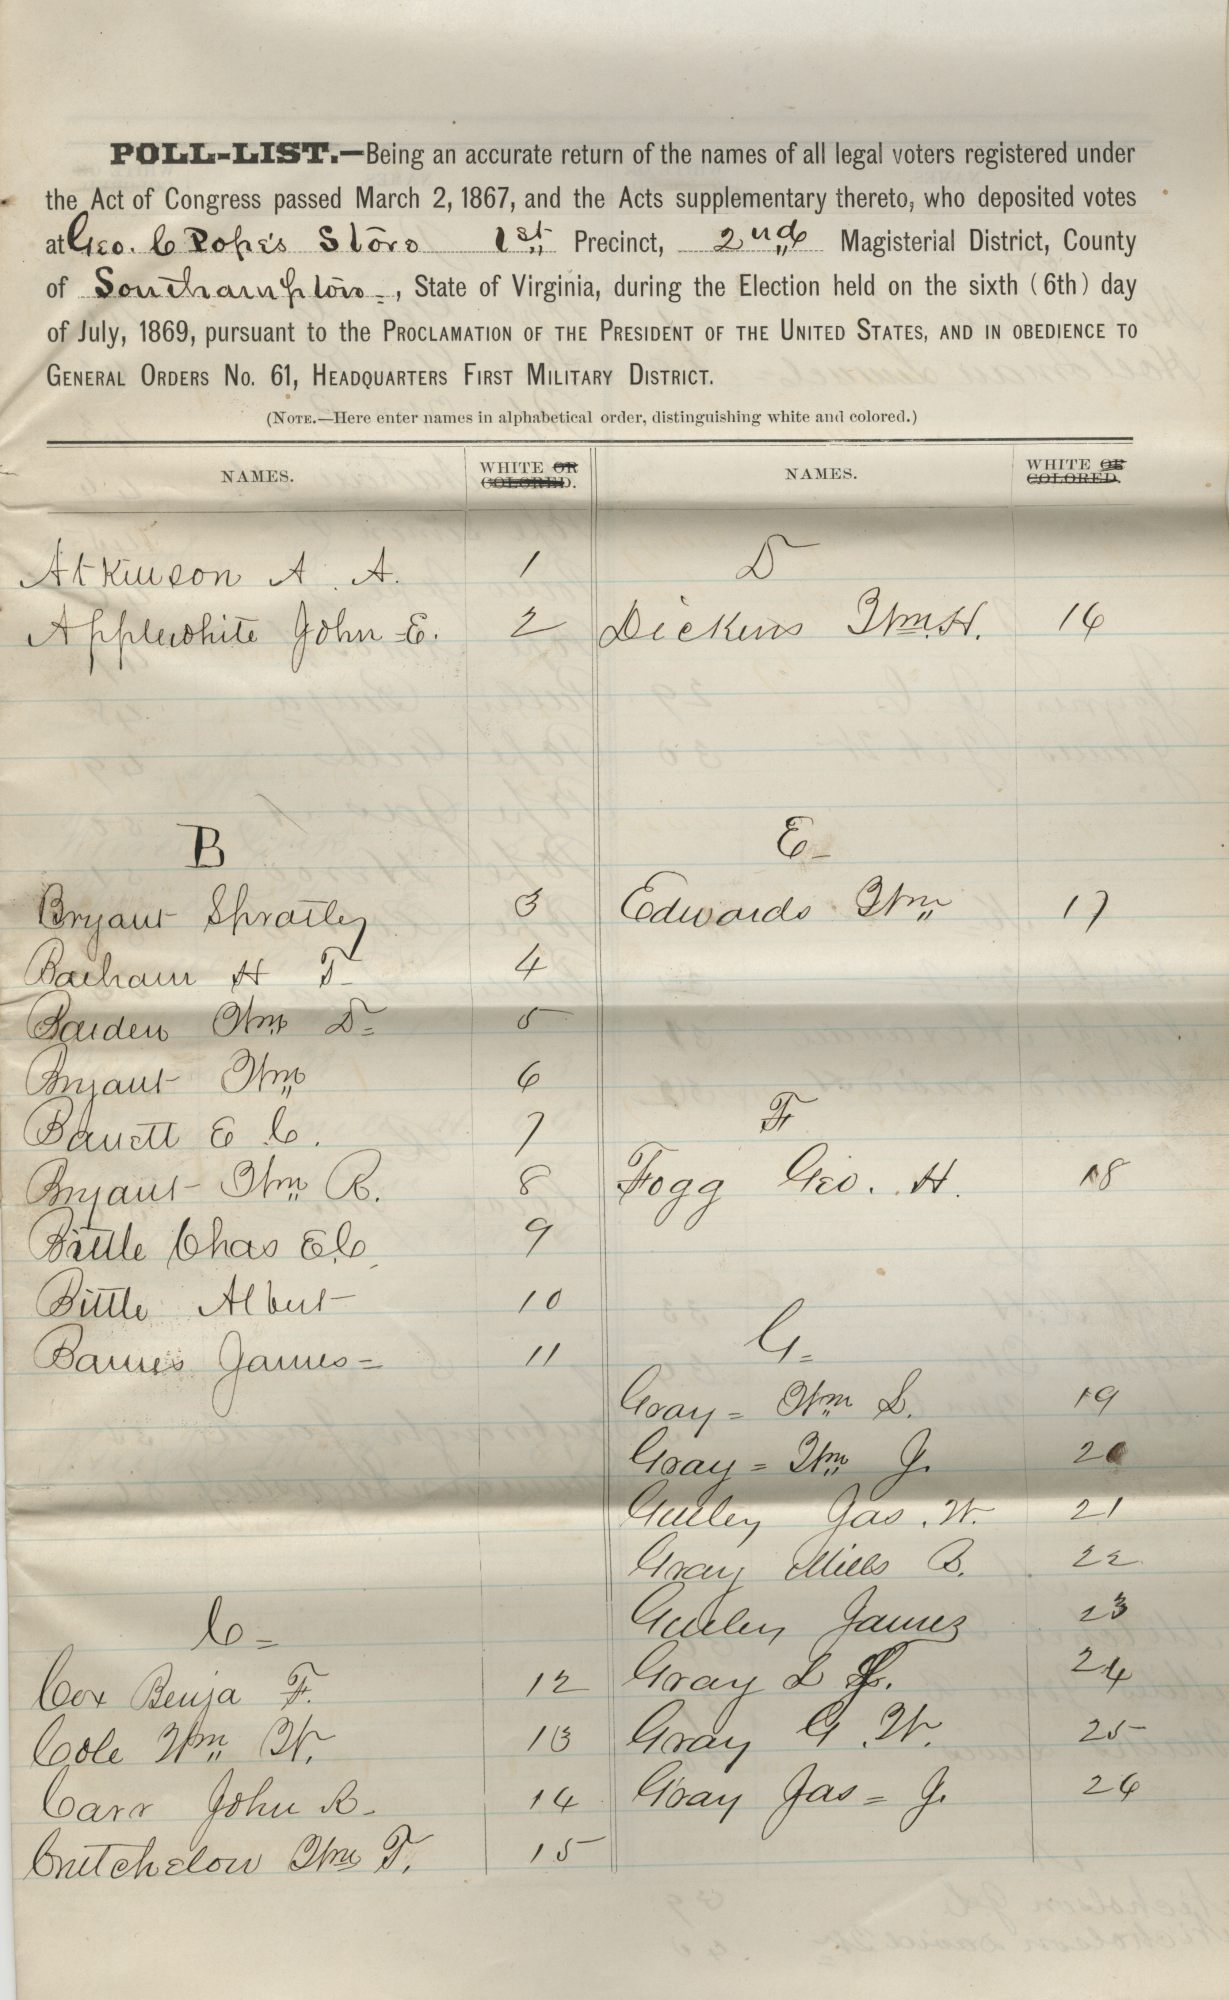 POLL-LIST.—Being an accurate return of the names of all legal voters registered under
the Act of Congress passed March 2, 1867, and the Acts supplementary thereto, who deposited votes
at Geo. C Pope's Store 1st Precinct, 2nd Magisterial District, County
of Southampton, State of Virginia, during the Election held on the sixth (6th) day
of July, 1869, pursuant to the PROCLAMATION OF THE PRESIDENT OF THE UNITED STATES, AND IN OBEDIENCE TO
GENERAL ORDERS No. 61, HEADQUARTERS FIRST MILITARY DISTRICT.
(NOTE.—Here enter names in alphabetical order, distinguishing white and colored.)
NAMES.
WHITE OR
COLORED.
Atkinson A. A. 1
Applewhite John E. 2
B
Bryant Spratley 3
Barham H T 4
Barden Wm D. 5
Bryant Wm 6
Barrett E C. 7
Bryant Wm R. 8
Bittle Chas E.C. 9
Bittle Albert 10
Barnes James 11
C
Cox Benja F. 12
Cole Wm W. 13
Carr John R. 14
Critchelow Wm T. 15
NAMES.
WHITE OR
COLORED.
D
Dickins Wm. H. 16
E
Edwards Wm 17
F
Fogg Geo. H. 18
G
Gray Wm S. 19
Gray Wm J. 20
Gurley Jas. W. 21
Gray Mills B. 22
Gurley James 23
Gray L 24
Gray G. W. 25
Gray Jas J. 26